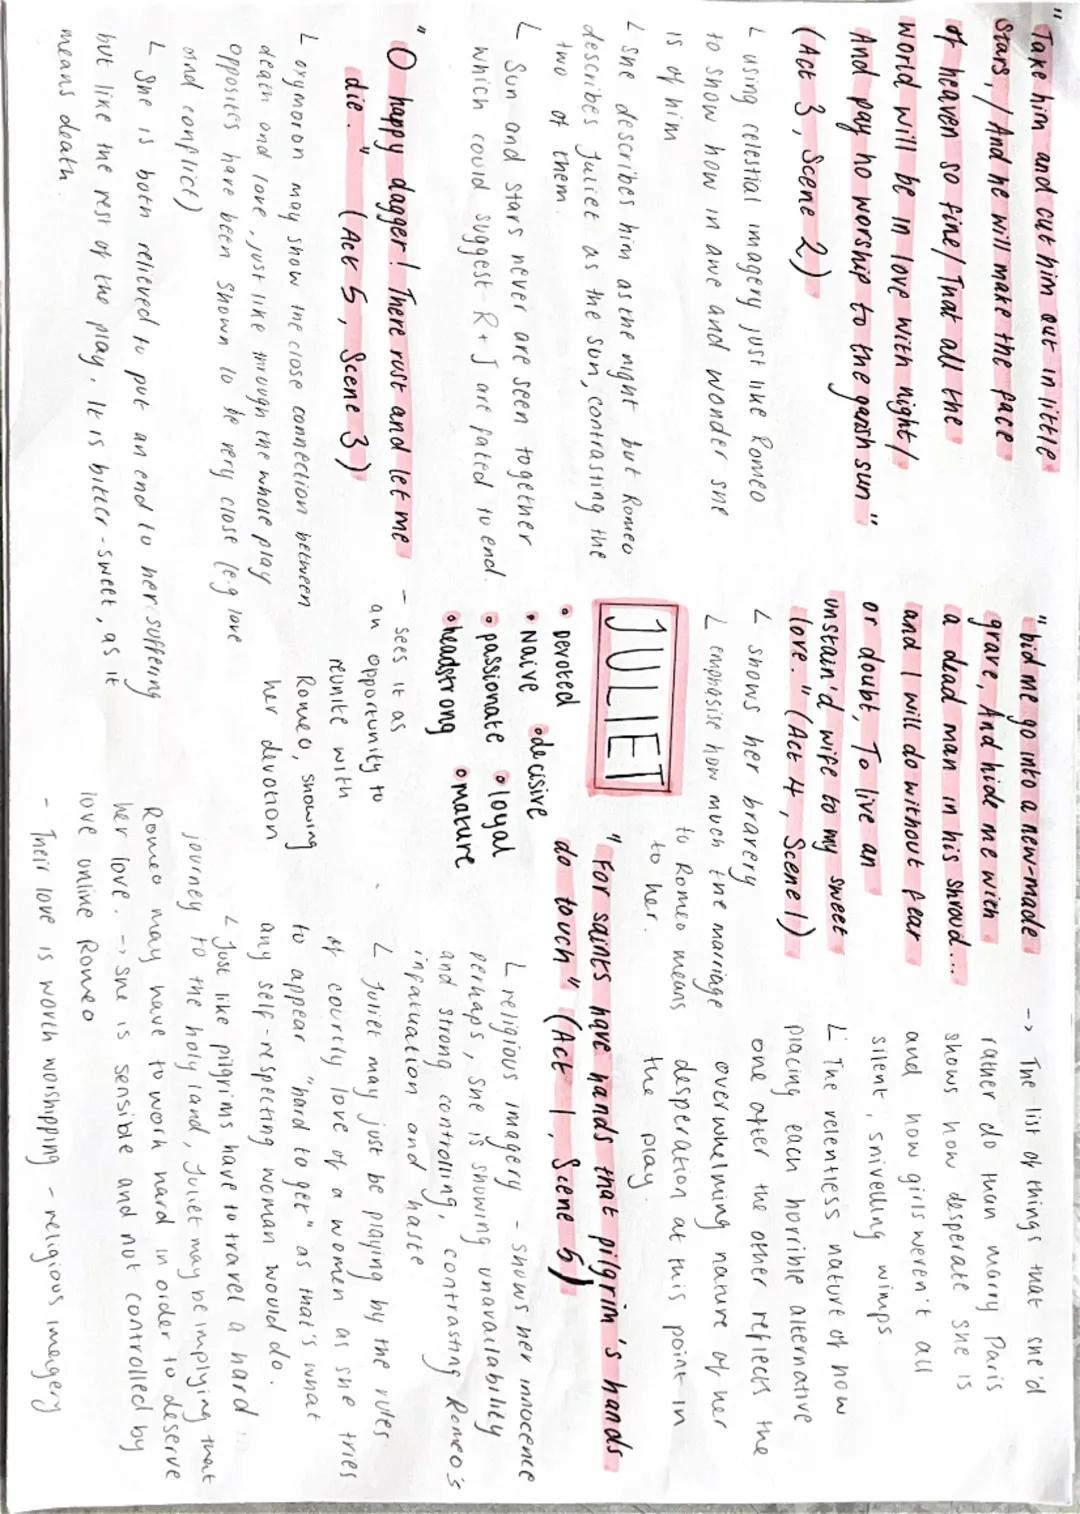 "Take him and cut him out in little
stars, / And he will make the face
of heaven so fine / That all the
world will be in love with night /
And pay no worship to the garish sun"
(Act 3, Scene 2)
L using celestial imagery just like Romeo
to show how in awe and wonder she
is of him
L she describes him as the night but Romeo
describes Juliet as the sun, contrasting the
two of them.
L Sun and stars never are seen together
which could suggest R + J are fated to end.
"O happy dagger! There rust and let me
die." (Act 5, Scene 3)
- sees it as
an opportunity to
reunite with
Romeo, showing
her devotion
L oxymoron may show the close connection between
death and love, just like through the whole play
opposies have been shown to be very close (e.g love
and conflict)
L She is both relieved to put an end to her suffering
but like the rest of the play, it is bitter-sweet, as it
means death.
JULIET
• Devoted
• Naive • decisive
• passionate • loyal
• headstrong • mature
"bid me go into a new-made
grave, And hide me with
a dead man in his shroud...
and I will do without fear
or doubt, To live an
unstain'd wife to my sweet
love." (Act 4, Scene 1)
L shows her bravery
L emphasise how much the marriage
to Romeo means
to her.
-> The list of things that she'd
rather do than marry Paris
shows how desperate she is
and how girls weren't all
silent, snivelling wimps
L The relentless nature of how
placing each horrible alternative
one after the other reflects the
overwhelming nature of her
desperation at this point in
the play.
"For saints have hands that pilgrim's hands
do touch" (Act 1, Scene 5)
L religious imagery - shows her innocence
perhaps, she is showing unavailability
and strong controlling, contrasting Romeo's
infatuation and haste
L Juliet may just be playing by the rules
of courtly love of a women as she tries
to appear "hard to get" as that's what
any self-respecting woman would do.
L Just like pilgrims have to travel a hard
journey to the holy land, Juliet may be implying that
Romeo may have to work hard in order to deserve
her love. -> she is sensible and not controlled by
love unlike Romeo
- Their love is worth worshipping - religious imagery